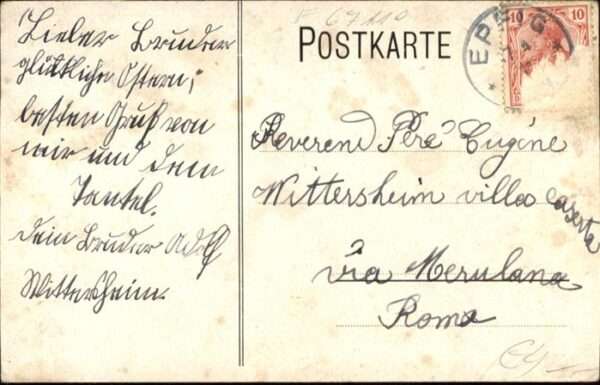 Lieber Bruder
glückliche Ostern;
besten Gruß von
mir und dem
Tantel.
Dein Bruder Adolf
Wittersheim.
67110
POSTKARTE
EPFIG
10 10
Reverend Peré Eugéne
Wittersheim villa Caserta
via Merulana
Roma